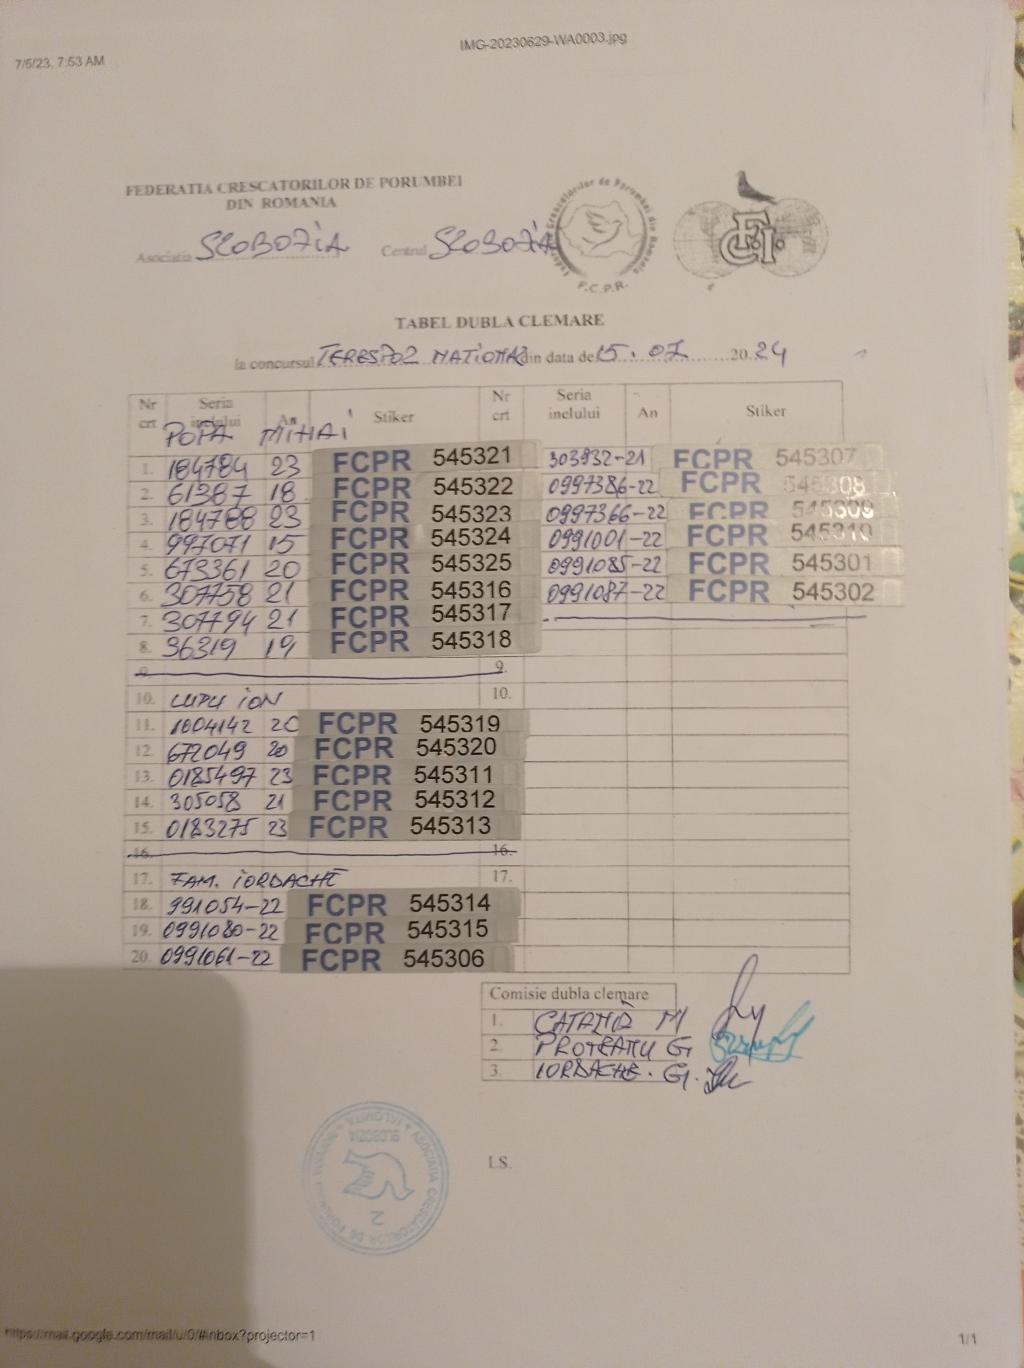 7/5/23, 7:53 AM
IMG-20230629-WA0003.jpg
FEDERATIA CRESCATORILOR DE PORUMBEI
DIN ROMANIA
Asociatia SLOBOZIA Centrul SLOBOZIA
F.C.P.R.
FCI
TABEL DUBLA CLEMARE
la concursul TERESPOL NATIONAL din data de 15.07 2024
Nr crt Seria inelului An Stiker Nr crt Seria inelului An Stiker
POPA MIHAI
1. 184784 23 FCPR 545321 303932-21 FCPR 545307
2. 61387 18 FCPR 545322 0997386-22 FCPR 545308
3. 184788 23 FCPR 545323 0997366-22 FCPR 545309
4. 997071 15 FCPR 545324 0991001-22 FCPR 545310
5. 673361 20 FCPR 545325 0991085-22 FCPR 545301
6. 307758 21 FCPR 545316 0991087-22 FCPR 545302
7. 307794 21 FCPR 545317
8. 36319 19 FCPR 545318
9. 9.
10. LUPU ION 10.
11. 1004142 20 FCPR 545319
12. 672049 20 FCPR 545320
13. 0185497 23 FCPR 545311
14. 305058 21 FCPR 545312
15. 0183275 23 FCPR 545313
16. 16.
17. FAM. IORDACHE 17.
18. 991054-22 FCPR 545314
19. 0991080-22 FCPR 545315
20. 0991061-22 FCPR 545306
Comisie dubla clemare
1. CATANĂ M
2. PROTEANU G.
3. IORDACHE. G.
LS.
https://mail.google.com/mail/u/0/#inbox?projector=1
1/1